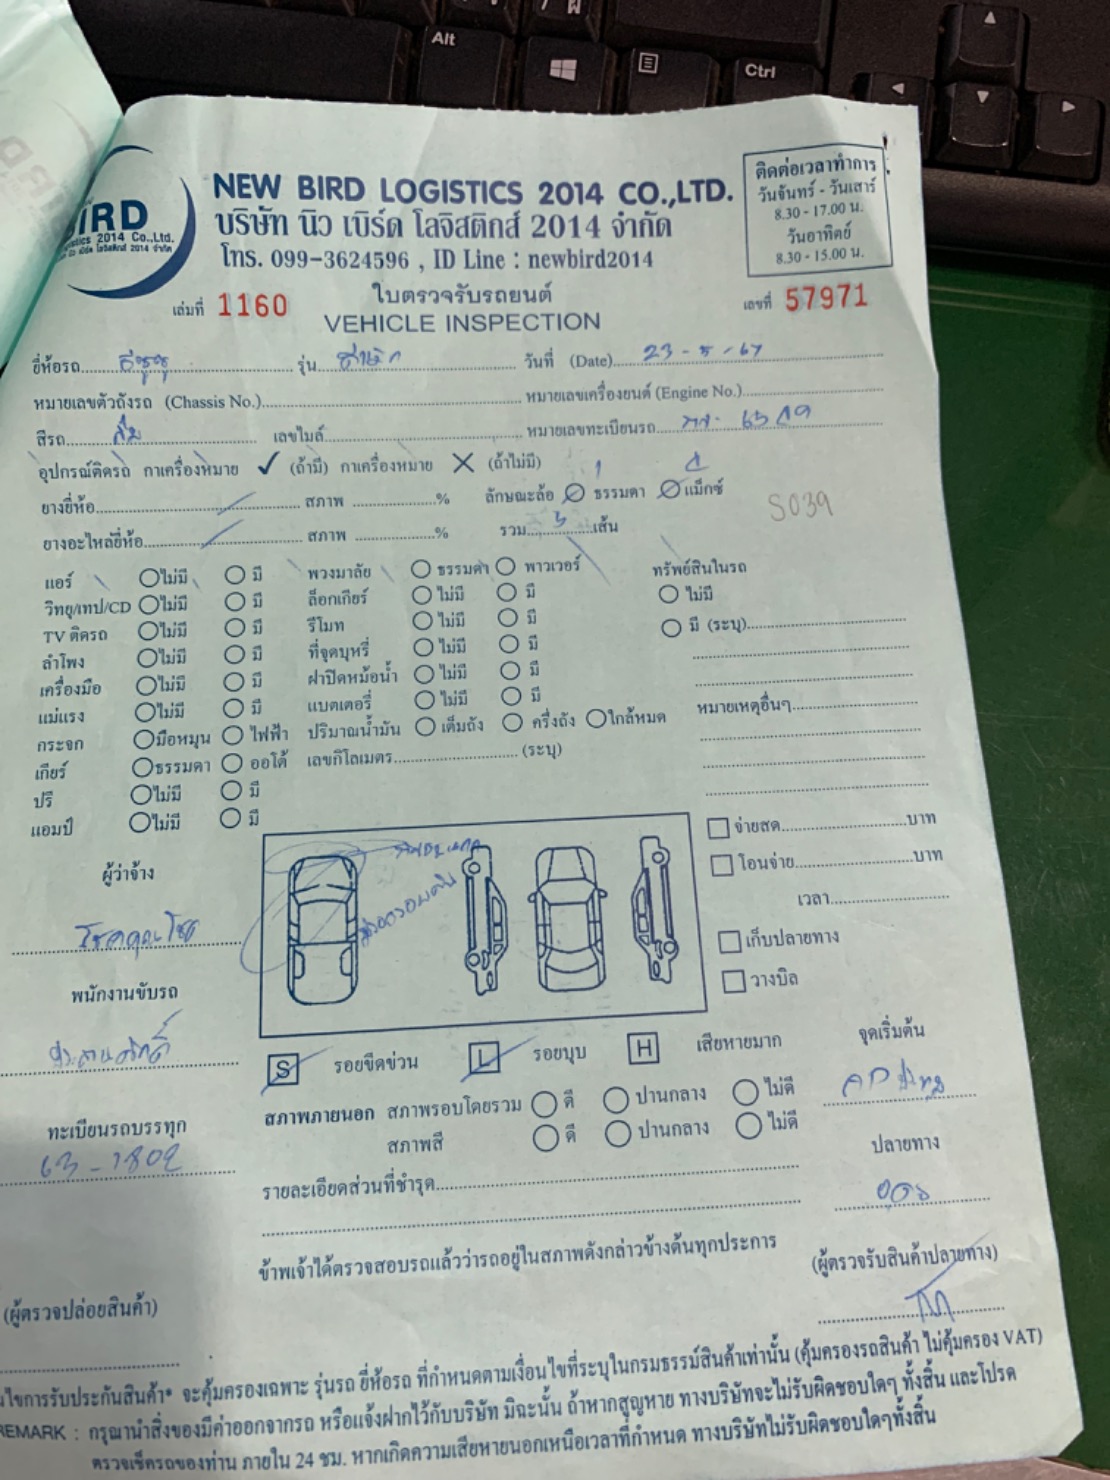 Alt
Ctrl
BIRD
NEW BIRD LOGISTICS 2014 CO.,LTD.
บริษัท นิว เบิร์ด โลจิสติกส์ 2014 จำกัด
โทร. 099-3624596 , ID Line : newbird2014
ติดต่อเวลาทำการ
วันจันทร์ - วันเสาร์
8.30 - 17.00 น.
วันอาทิตย์
8.30 - 15.00 น.
เล่มที่ 1160
ใบตรวจรับรถยนต์
VEHICLE INSPECTION
เลขที่ 57971
ยี่ห้อรถ อีซูซุ รุ่น วันที่ (Date) 23-5-67
หมายเลขตัวถังรถ (Chassis No.) หมายเลขเครื่องยนต์ (Engine No.)
สีรถ ส้ม เลขไมล์ หมายเลขทะเบียนรถ
อุปกรณ์ติดรถ กาเครื่องหมาย ✓ (ถ้ามี) กาเครื่องหมาย ✗ (ถ้าไม่มี)
ยางยี่ห้อ สภาพ % ลักษณะล้อ ธรรมดา แม็กซ์
S039
ยางอะไหล่ยี่ห้อ สภาพ % รวม 5 เส้น
แอร์ ไม่มี มี พวงมาลัย ธรรมดา พาวเวอร์ ทรัพย์สินในรถ
วิทยุ/เทป/CD ไม่มี มี ล็อกเกียร์ ไม่มี มี ไม่มี
TV ติดรถ ไม่มี มี รีโมท ไม่มี มี มี (ระบุ)
ลำโพง ไม่มี มี ที่จุดบุหรี่ ไม่มี มี
เครื่องมือ ไม่มี มี ฝาปิดหม้อน้ำ ไม่มี มี
แม่แรง ไม่มี มี แบตเตอรี่ ไม่มี มี หมายเหตุอื่นๆ
กระจก มือหมุน ไฟฟ้า ปริมาณน้ำมัน เต็มถัง ครึ่งถัง ใกล้หมด
เกียร์ ธรรมดา ออโต้ เลขกิโลเมตร (ระบุ)
ปรี ไม่มี มี
แอมป์ ไม่มี มี
จ่ายสด บาท
โอนจ่าย บาท
เวลา
เก็บปลายทาง
วางบิล
ผู้ว่าจ้าง
โชคคูณโชค
พนักงานขับรถ
ประสานศักดิ์
ทะเบียนรถบรรทุก
63-1802
S รอยขีดข่วน L รอยบุบ H เสียหายมาก
จุดเริ่มต้น
สภาพภายนอก สภาพรอบโดยรวม ดี ปานกลาง ไม่ดี
สภาพสี ดี ปานกลาง ไม่ดี
ปลายทาง
อุดร
รายละเอียดส่วนที่ชำรุด
ข้าพเจ้าได้ตรวจสอบรถแล้วว่ารถอยู่ในสภาพดังกล่าวข้างต้นทุกประการ
(ผู้ตรวจรับสินค้าปลายทาง)
(ผู้ตรวจปล่อยสินค้า)
นไขการรับประกันสินค้า* จะคุ้มครองเฉพาะ รุ่นรถ ยี่ห้อรถ ที่กำหนดตามเงื่อนไขที่ระบุในกรมธรรม์สินค้าเท่านั้น (คุ้มครองรถสินค้า ไม่คุ้มครอง VAT)
REMARK : กรุณานำสิ่งของมีค่าออกจากรถ หรือแจ้งฝากไว้กับบริษัท มิฉะนั้น ถ้าหากสูญหาย ทางบริษัทจะไม่รับผิดชอบใดๆ ทั้งสิ้น และโปรด
ตรวจเช็ครถของท่าน ภายใน 24 ชม. หากเกิดความเสียหายนอกเหนือเวลาที่กำหนด ทางบริษัทไม่รับผิดชอบใดๆทั้งสิ้น